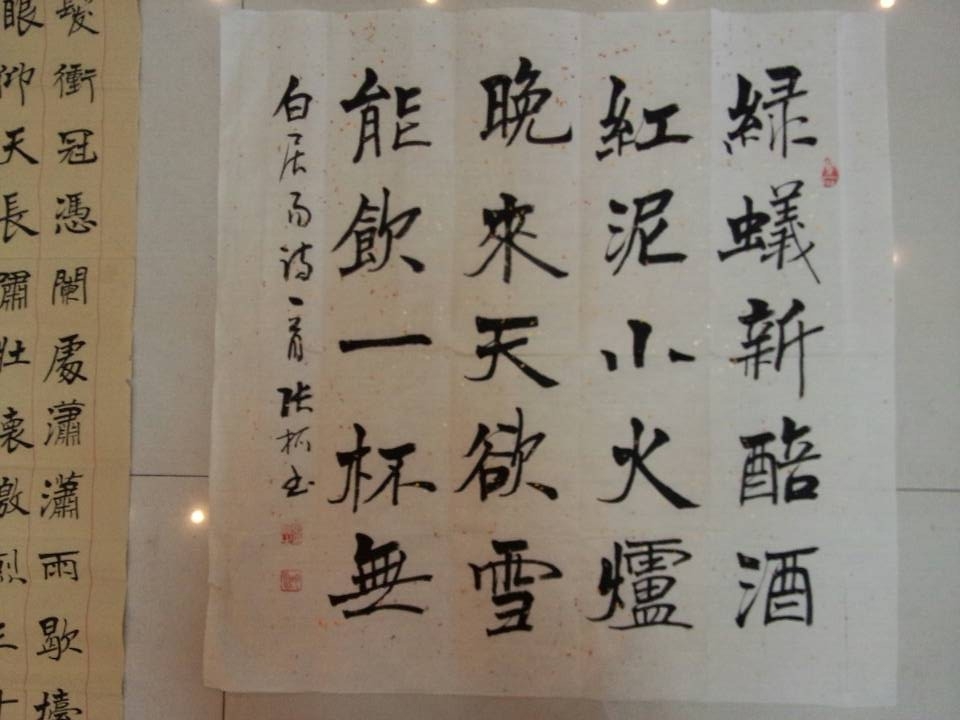 緑蟻新醅酒
紅泥小火爐
晚來天欲雪
能飲一杯無
白居易诗一首 张 书
髮衝冠憑闌處瀟瀟雨歇擡
眼仰天長嘯壯懷激烈三十